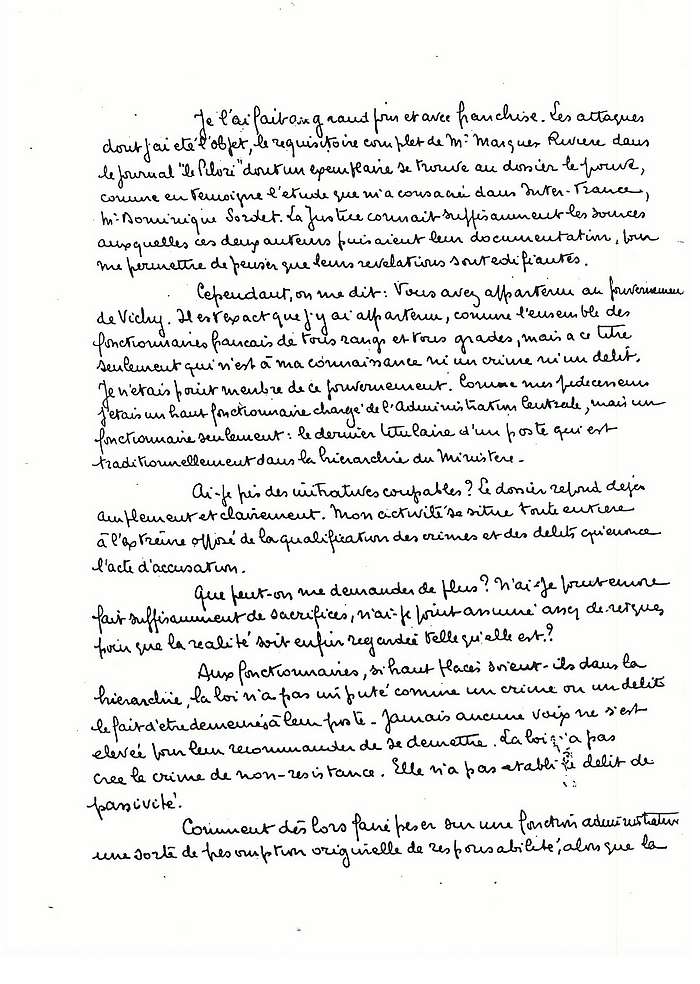 Je l'ai fait au grand jour et avec franchise. Les attaques
dont j'ai été l'objet, le requisitoire complet de Mr Marques Riviere dans
le journal "le Pilori" dont un exemplaire se trouve au dossier le prouve,
comme en temoigne l'etude que m'a consacrée dans Inter-France,
Mr Dominique Sordet. La Justice connait suffisamment les sources
auxquelles ces deux auteurs puisaient leur documentation, pour
me permettre de penser que leurs revelations sont edifiantes.
Cependant, on me dit : Vous avez appartenu au gouvernement
de Vichy. Il est exact que j'y ai appartenu, comme l'ensemble des
fonctionnaires francais de tous rangs et tous grades, mais a ce titre
seulement qui n'est à ma connaissance ni un crime ni un delit.
Je n'etais point membre de ce gouvernement. Comme mes predecesseurs
j'etais un haut fonctionnaire chargé de l'Administration Centrale, mais un
fonctionnaire seulement : le dernier titulaire d'un poste qui est
traditionnellement dans la hierarchie du Ministere -
Ai-je pris des initiatives coupables ? Le dossier repond deja
amplement et clairement. Mon activité se situe toute entiere
à l'extrême opposé de la qualification des crimes et des delits qu'enonce
l'acte d'accusation.
Que peut-on me demander de plus ? N'ai-je point encore
fait suffisamment de sacrifices, n'ai-je point assumé assez de risques
pour que la realité soit enfin regardée telle qu'elle est ?
Aux fonctionnaires, si haut placés soient-ils dans la
hierarchie, la loi n'a pas imputé comme un crime ou un delit
le fait d'etre demeurés à leur poste - Jamais aucune voix ne s'est
elevée pour leur recommander de se demettre. La loi n'a pas
cree le crime de non-resistance. Elle n'a pas etabli le delit de
passivité.
Comment dès lors faire peser sur une fonction administrative
une sorte de presomption originelle de responsabilité, alors que la